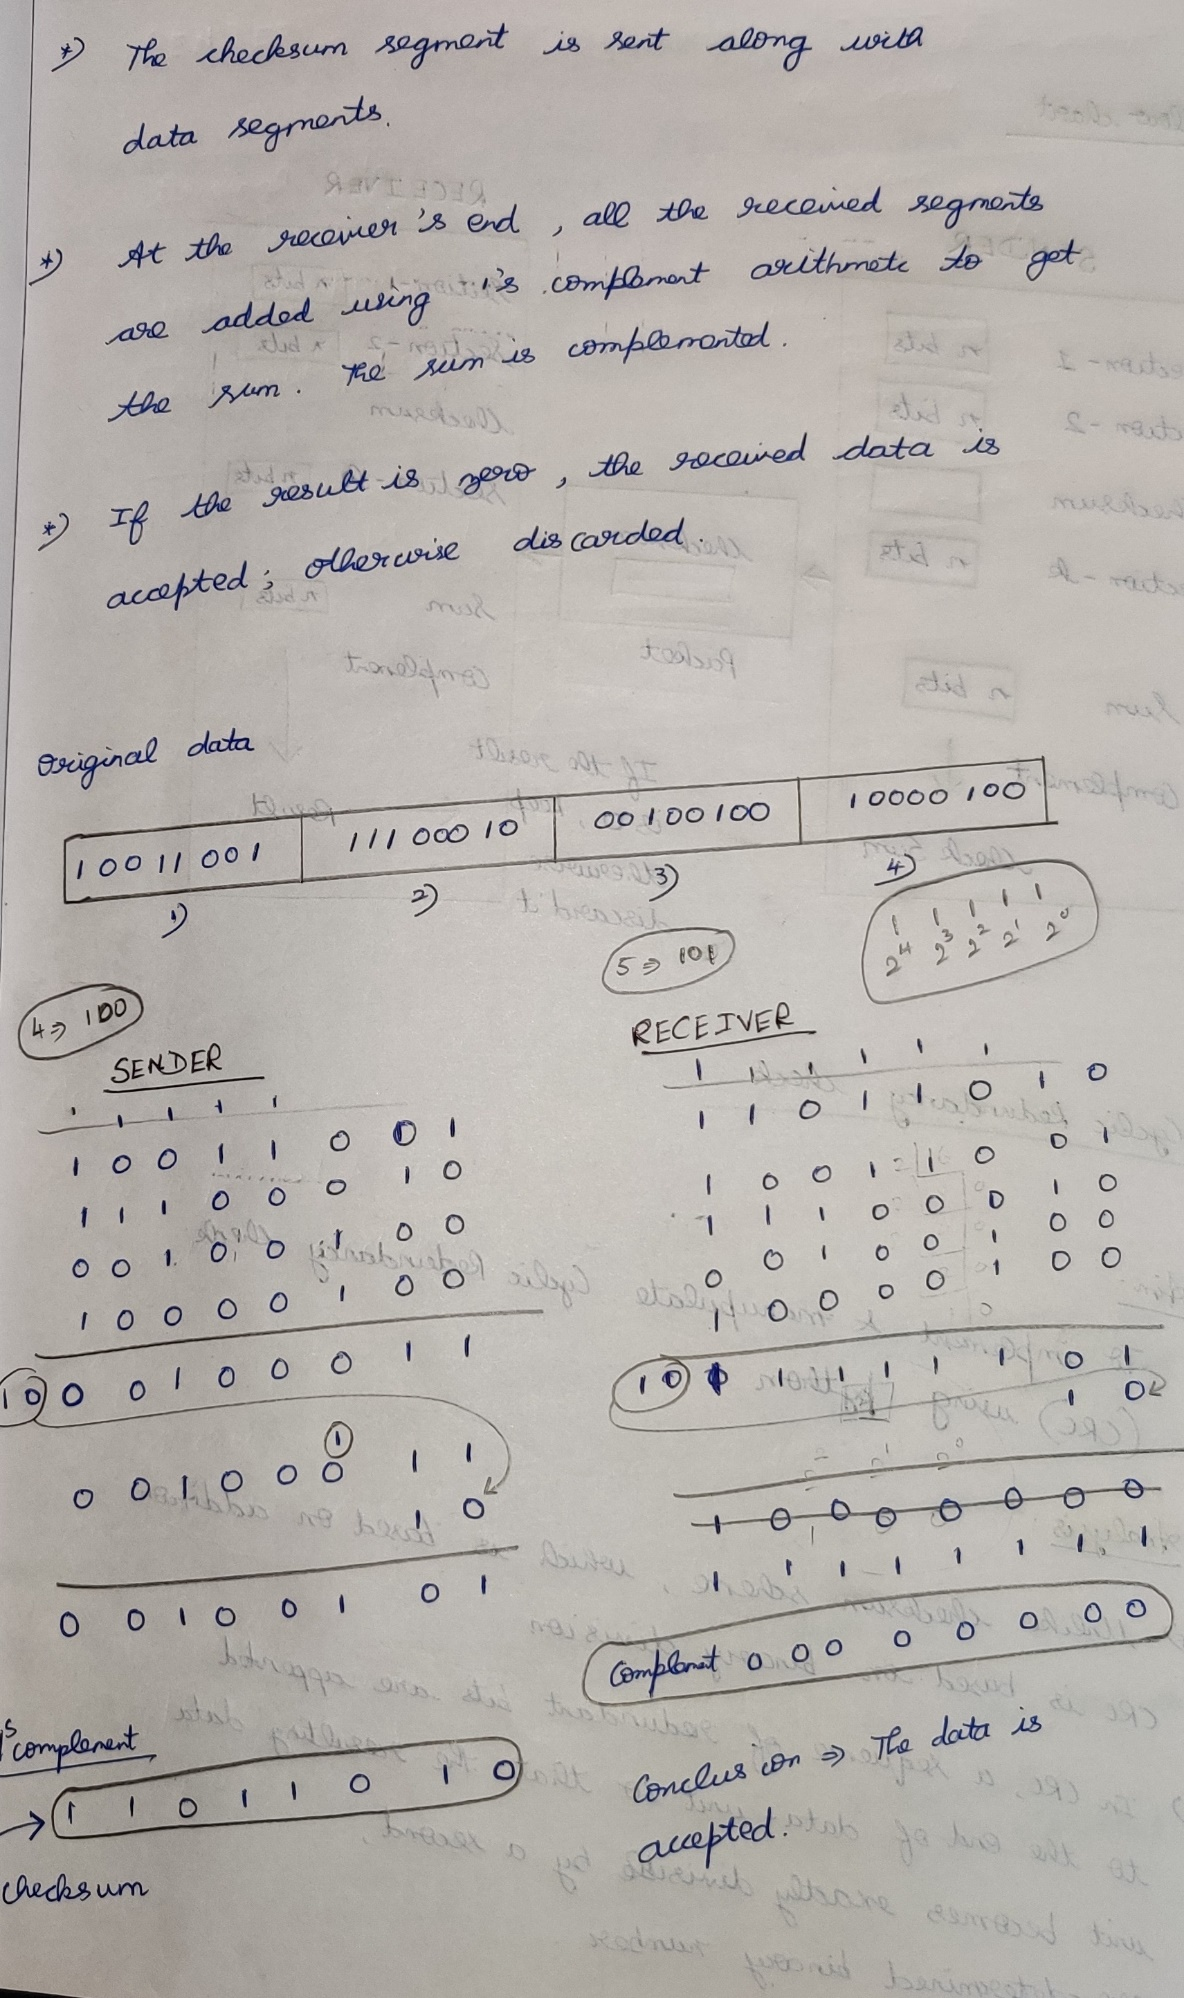 *) The checksum segment is sent along with
data segments.
*) At the receiver's end, all the received segments
are added using 1's complement arithmetic to get
the sum. The sum is complemented.
*) If the result is zero, the received data is
accepted; otherwise discarded.
Original data
10011001 11100010 00100100 10000100
1) 2) 3) 4)
1 1 1 1 1
2^4 2^3 2^2 2^1 2^0
5 ⇒ 101
4 ⇒ 100
SENDER
1 1 1 1 1
1 0 0 1 1 0 0 1
1 1 1 0 0 0 1 0
0 0 1 0 0 1 0 0
1 0 0 0 0 1 0 0
1 0 0 0 1 0 0 0 1 1
1
0 0 1 0 0 0 1 1
1 0
0 0 1 0 0 1 0 1
1's complement
1 1 0 1 1 0 1 0
→
checksum
RECEIVER
1 1 1 1 1 1
1 1 0 1 1 0 1 0
1 0 0 1 1 0 0 1
1 1 1 0 0 0 1 0
0 0 1 0 0 1 0 0
1 0 0 0 0 1 0 0
1 0 1 1 1 1 1 1 0 1
1 0
1 0 0 0 0 0 0 0
1 1 1 1 1 1 1 1
Complemet 0 0 0 0 0 0 0 0
Conclusion ⇒ The data is
accepted.